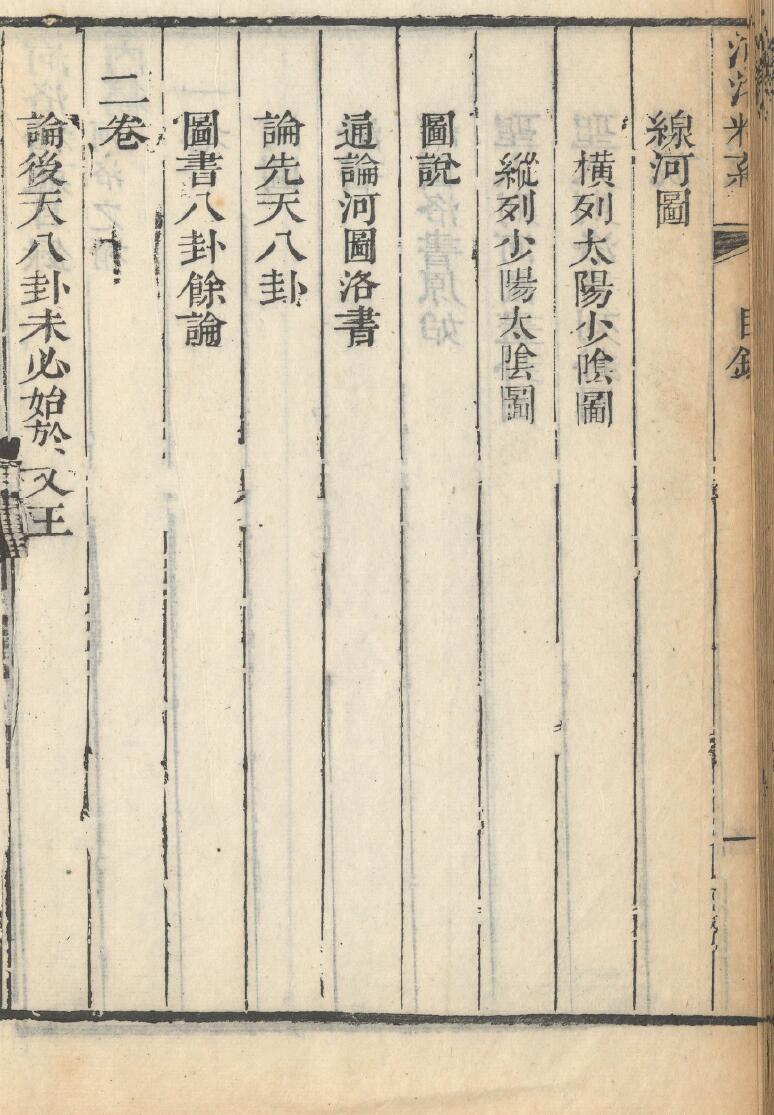 目錄
線河圖
橫列太陽少陰圖
縱列少陽太陰圖
圖說
通論河圖洛書
論先天八卦
圖書八卦餘論
二卷
論後天八卦未必始於文王